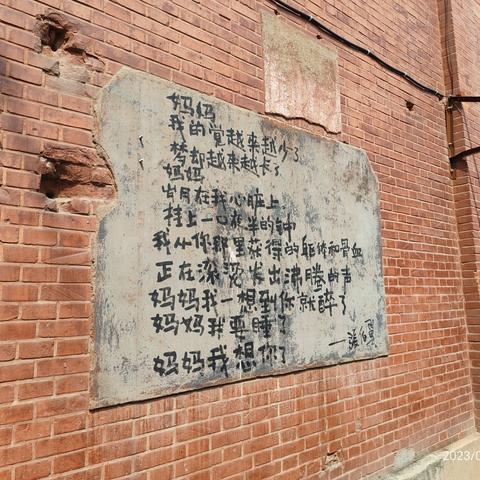 妈妈
我的觉越来越少了
梦却越来越长了
妈妈
岁月在我心脏上
挂上一口夜半的钟
我从你那里获得的躯体和骨血
正在滚滚发出沸腾的声
妈妈我一想到你就醉了
妈妈我要睡了
妈妈我想你了
2023/0